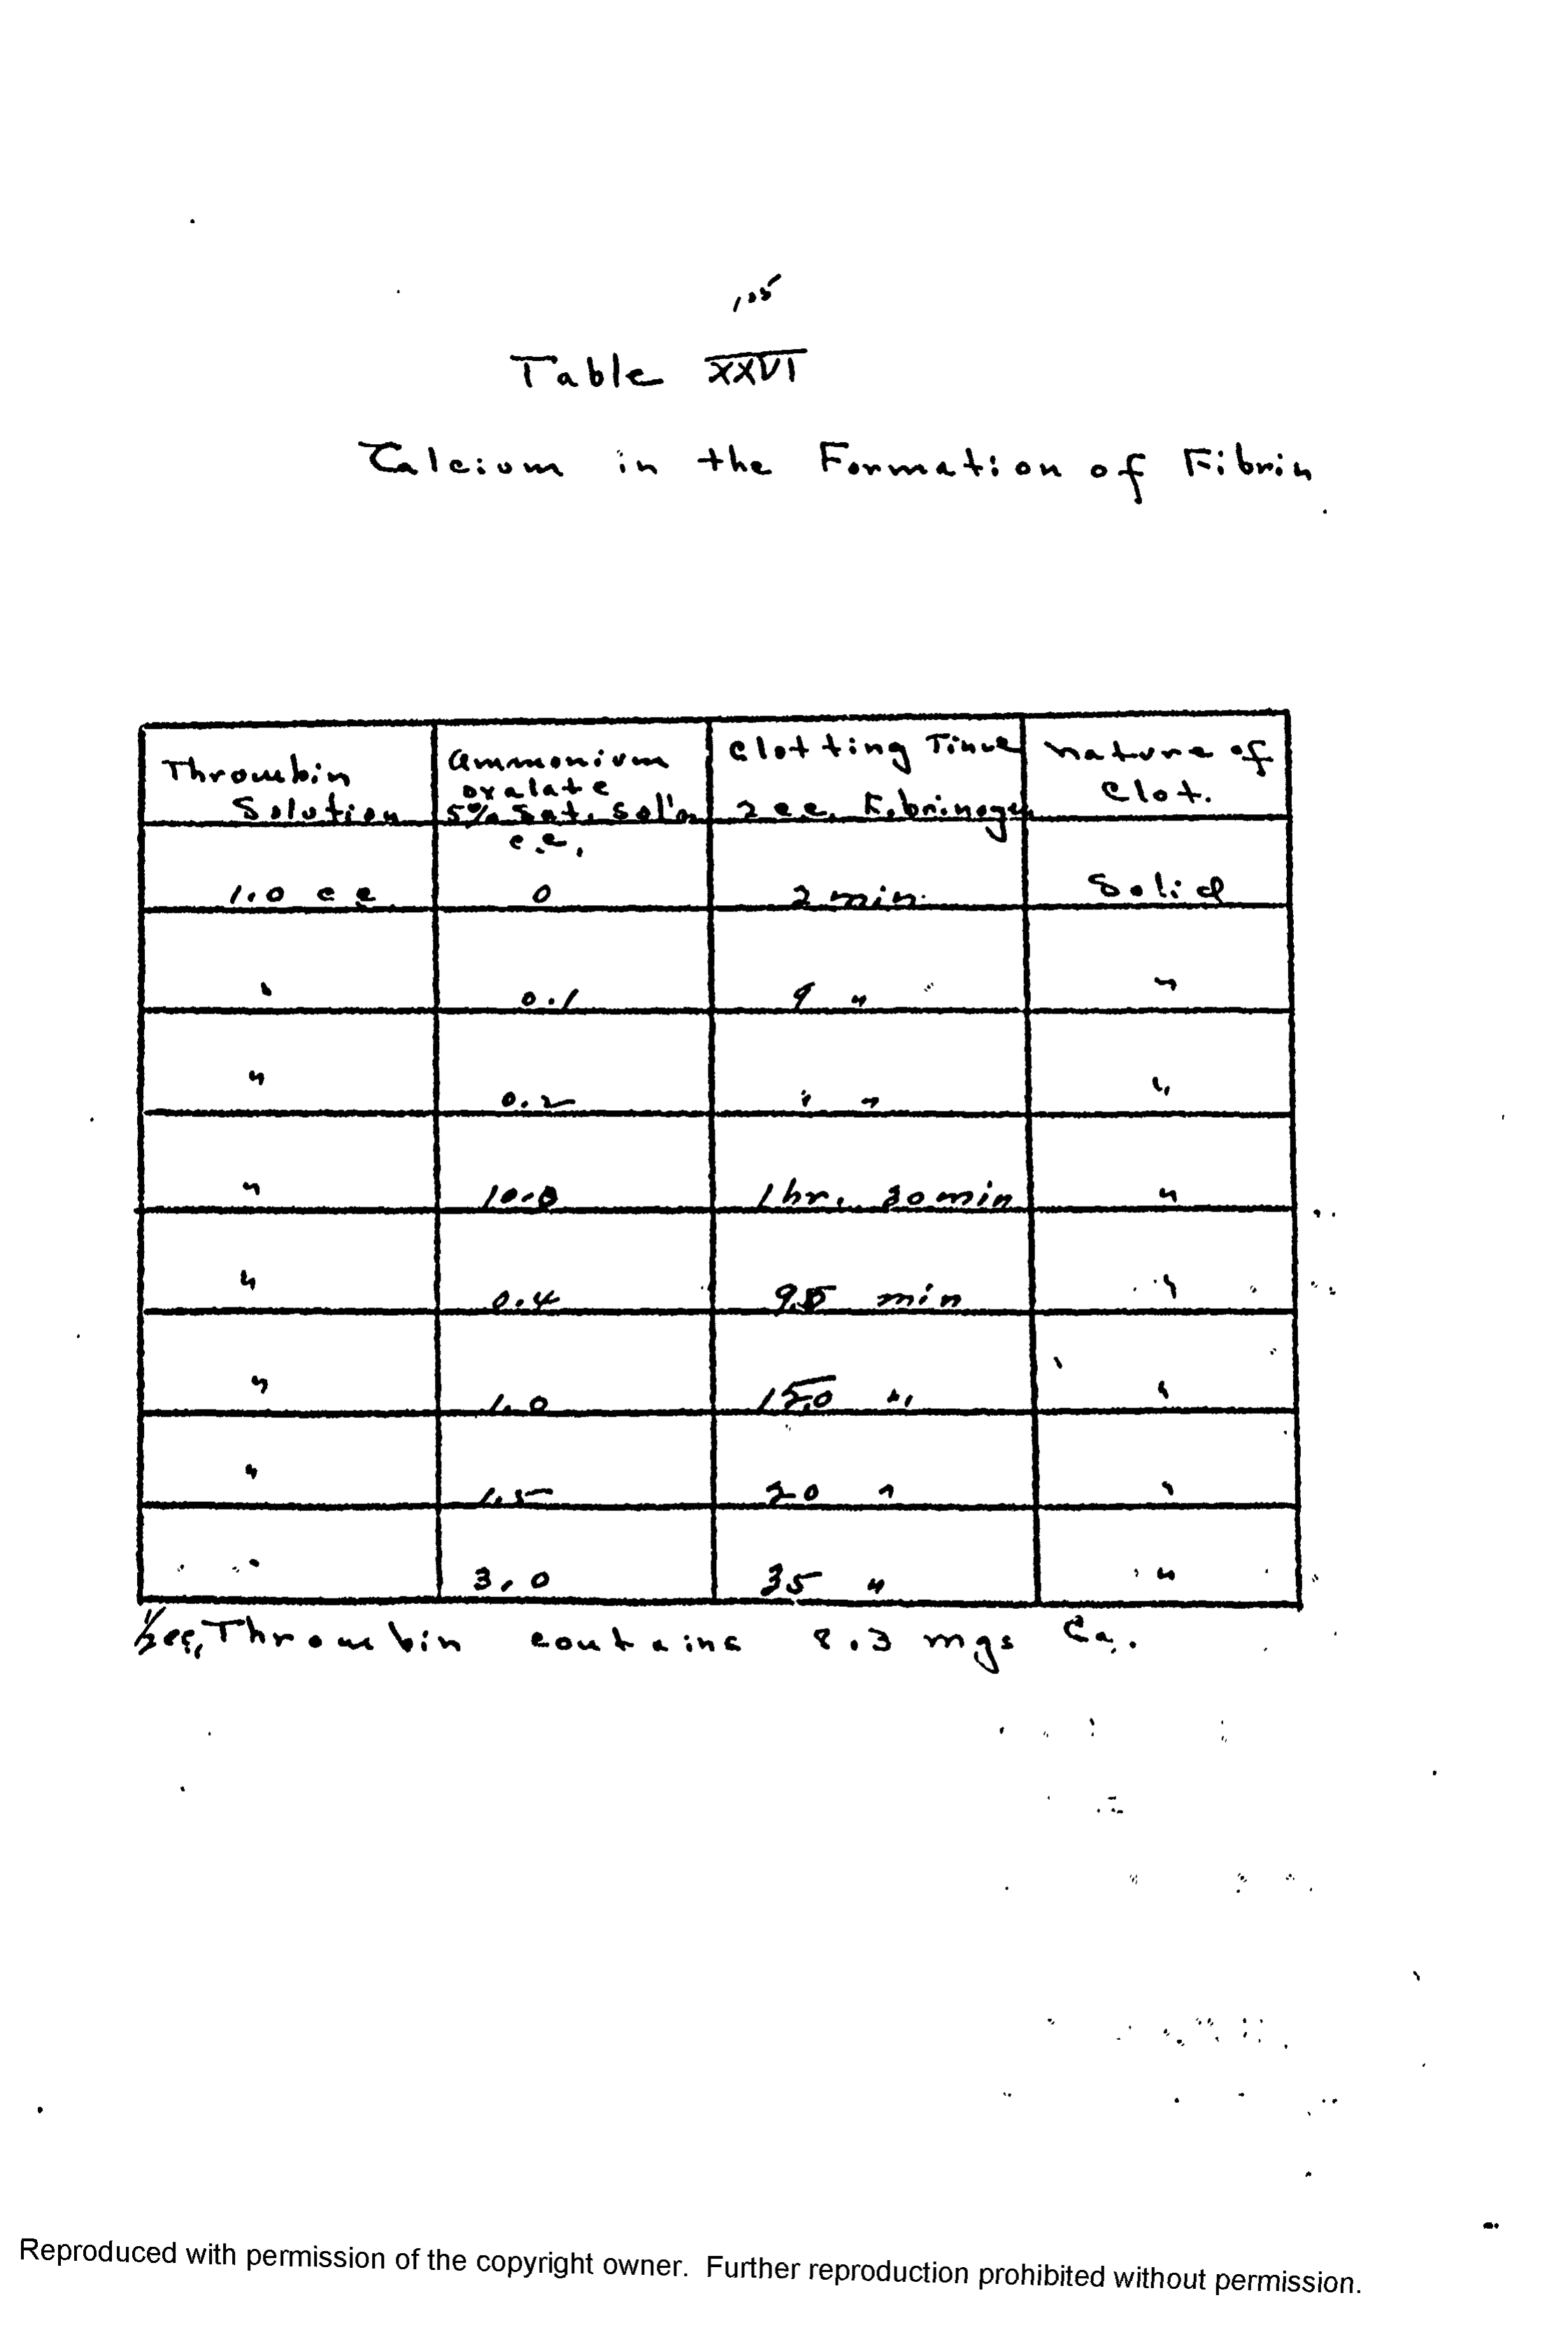 105
Table XXVI
Calcium in the Formation of Fibrin
Thrombin Solution | Ammonium oxalate 5% Sat. Sol'n c.c. | Clotting Time 2 cc. Fibrinogen | Nature of Clot.
1.0 cc | 0 | 2 min. | Solid
" | 0.1 | 9 " | "
" | 0.2 | " " | "
" | 10.0 | 1 hr. 30 min | "
" | 0.4 | min | "
" | 1.0 | 15.0 " | "
" | 1.5 | 20 " | "
" | 3.0 | 35 " | "
Thrombin contains 8.3 mgs Ca.
Reproduced with permission of the copyright owner. Further reproduction prohibited without permission.